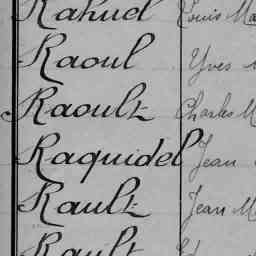 Rahuel Louis Ma
Raoul Yves
Raoult Charles M
Raquidel Jean
Rault Jean M
Rault